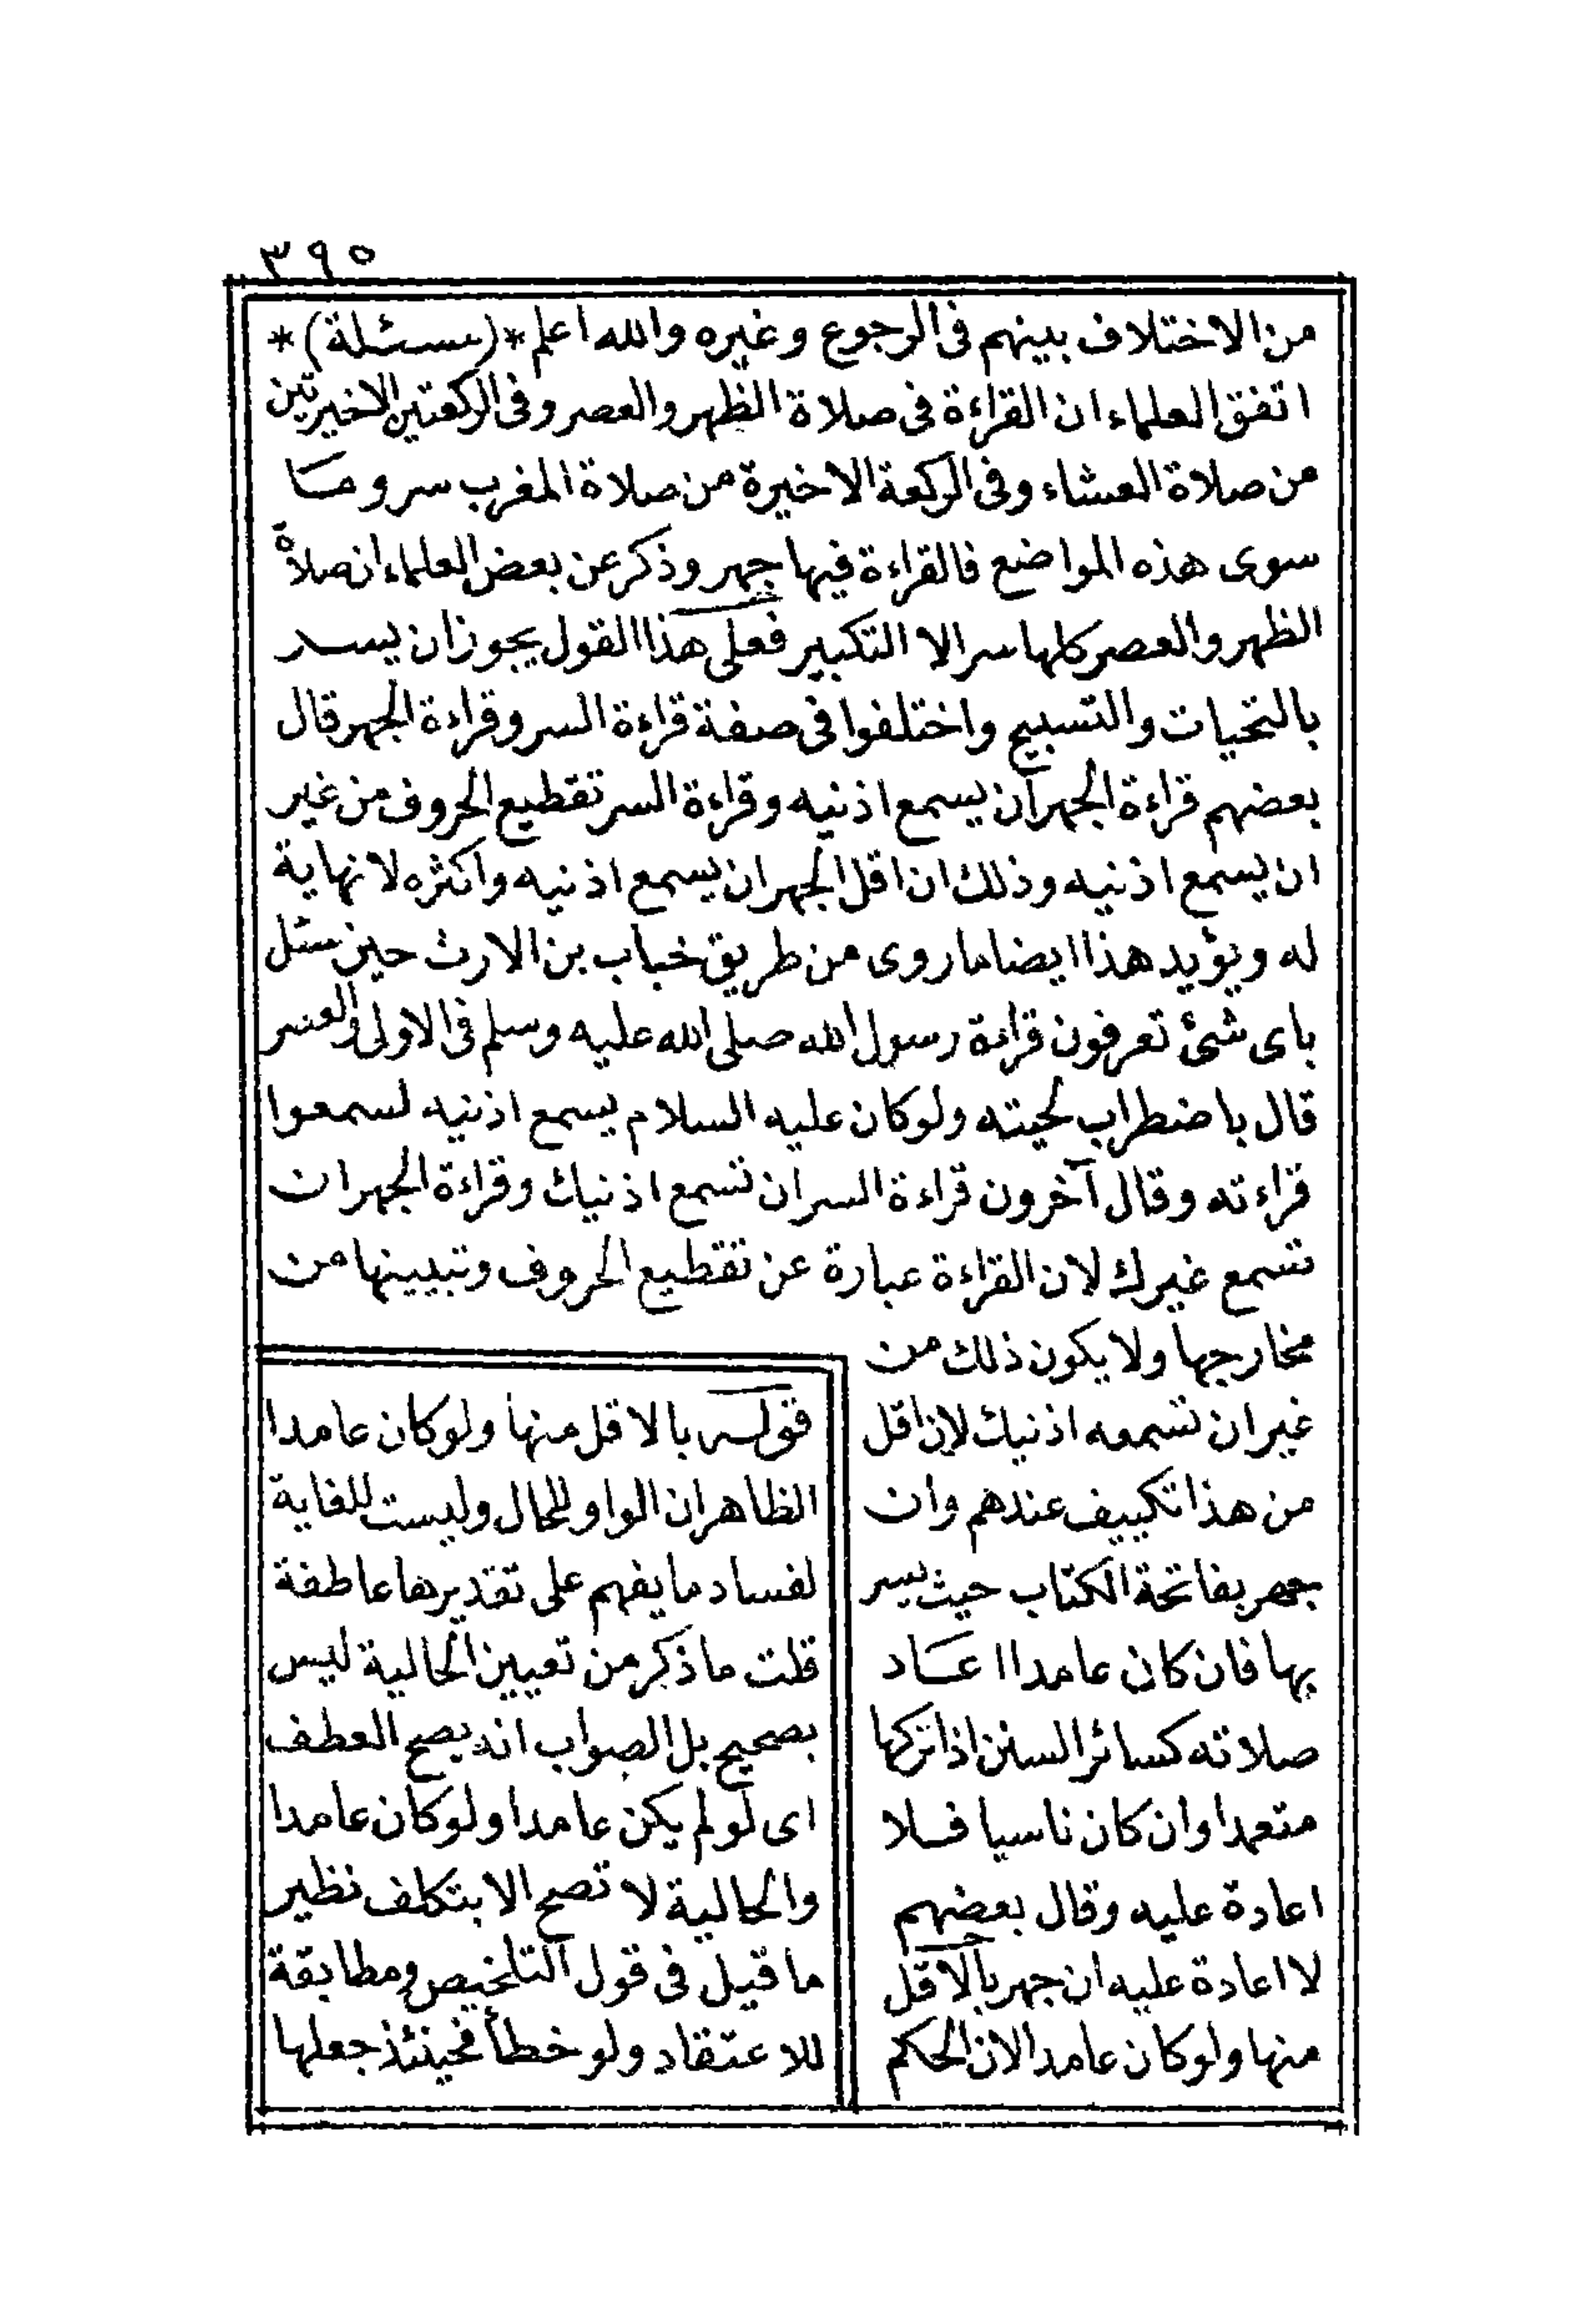 ٣٩٥
من الاختلاف بينهم فى الرجوع وغيره والله اعلم *(مسئلة)*
اتفق العلماء ان القراءة فى صلاة الظهر والعصر وفى الركعتين الاخيرتين
من صلاة العشاء وفى الركعة الاخيرة من صلاة المغرب سر وما
سوى هذه المواضع فالقراءة فيها جهر وذكر عن بعض العلماء ان صلاة
الظهر والعصر كلها سر الا التكبير فعلى هذا القول يجوز ان يسر
بالتحيات والتسبيح واختلفوا فى صفة قراءة السر وقراءة الجهر قال
بعضهم قراءة الجهر ان يسمع اذنيه وقراءة السر تقطيع الحروف من غير
ان يسمع اذنيه وذلك ان اقل الجهر ان يسمع اذنيه واكثره لا نهاية
له ويؤيد هذا ايضا ما روى من طريق خباب بن الارث حين سئل
باى شئ تعرفون قراءة رسول الله صلى الله عليه وسلم فى الاولى والعسر
قال باضطراب لحيته ولو كان عليه السلام يسمع اذنيه لسمعوا
قراءته وقال آخرون قراءة السر ان تسمع اذنيك وقراءة الجهر ان
تسمع غيرك لان القراءة عبارة عن تقطيع الحروف وتبيينها من
مخارجها ولا يكون ذلك من
غير ان تسمعه اذنيك لان اقل
من هذا تكييف عندهم وان
جهر بفاتحة الكتاب حيث يسر
بها فان كان عامدا اعاد
صلاته كسائر السنن اذا تركها
متعمدا وان كان ناسيا فلا
اعادة عليه وقال بعضهم
لا اعادة عليه ان جهر بالاقل
منها ولو كان عامدا لان الحكم
قوله بالاقل منها ولو كان عامدا
الظاهر ان الواو للحال وليست للغاية
لفساد ما يفهم على تقديرها عاطفة
قلت ما ذكر من تعيين الحالية ليس
بصحيح بل الصواب انه يصح العطف
اى لو لم يكن عامدا ولو كان عامدا
والحالية لا تصح الا بتكلف نظير
ما قيل فى قول التلخيص ومطابقة
للاعتقاد ولو خطأ فحينئذ جعلها